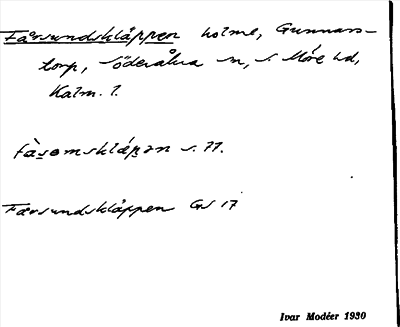 Fårsundskläppen holme, Gunnars-
torp, Söderåkra sn, S. Möre hd,
Kalm. l.
fàsomsklápan s. 77.
Farsundskläppen GS 17
Ivar Modéer 1930